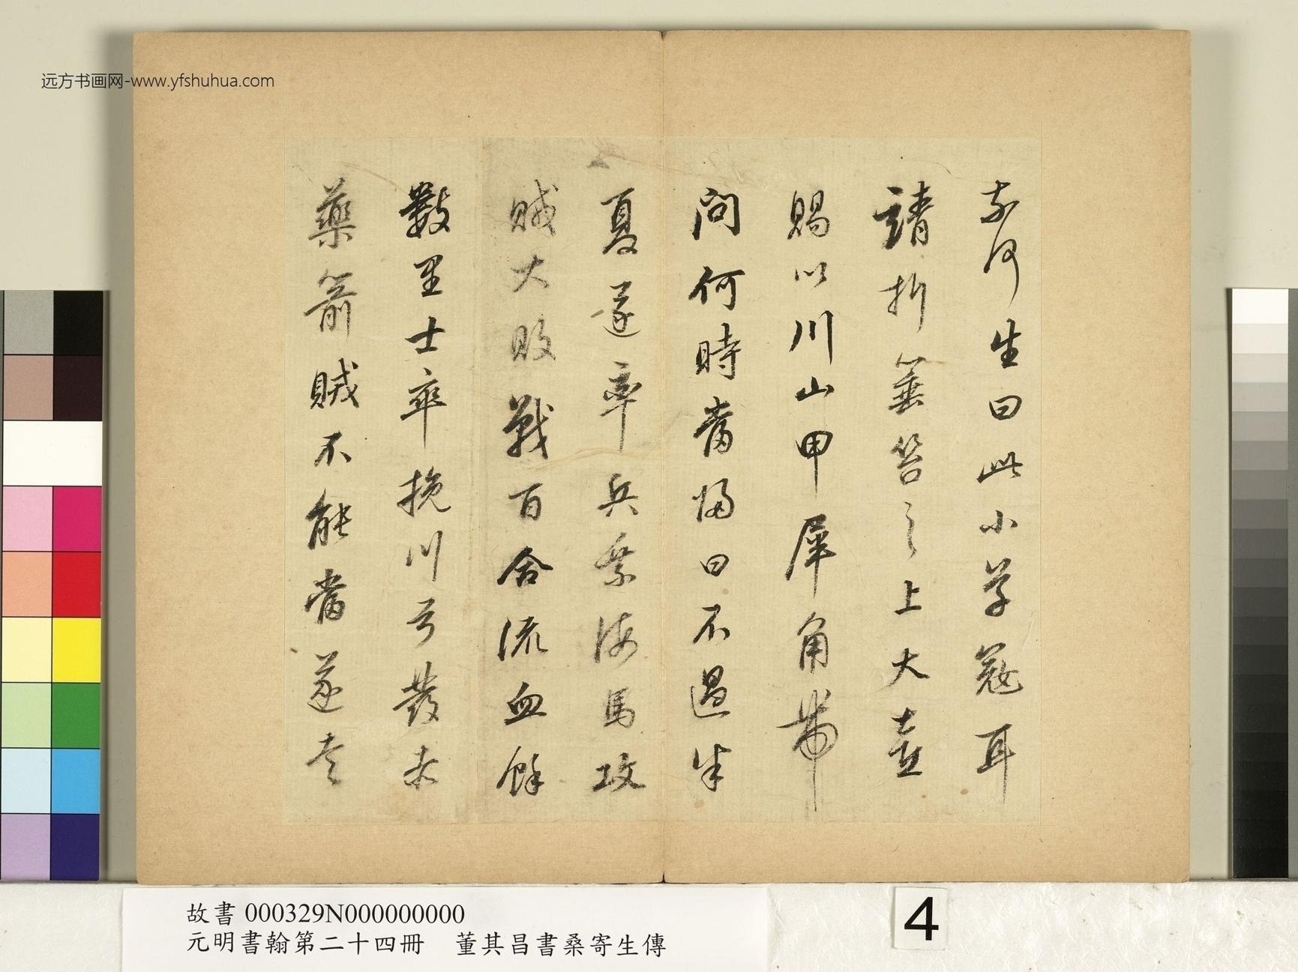 远方书画网-www.yfshuhua.com
奈何生曰此小草寇耳
請折箠笞之上大壺
賜以川山甲犀角帶
問何時當歸曰不過半
夏遂率兵乘海馬攻
賊大敗戰百合流血餘
數里士卒挽川弓發赤
藥箭賊不能當遂走
故書 000329N000000000
元明書翰第二十四冊 董其昌書桑寄生傳
4